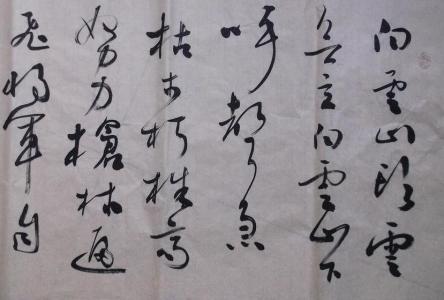 白雲山頭雲
欲立白雲山下
呼聲急
枯木朽株齊
努力槍林逼
飛將軍自